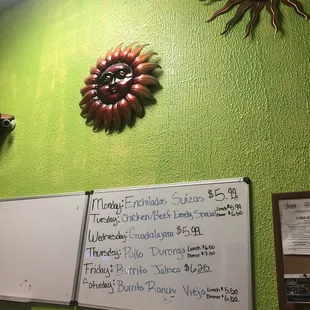 Monday: Enchiladas Suizas $5.99
Tuesday: Chicken/Beef Special Lunch $5.99
Dinner $6.50
Wednesday: Guadalajara $5.99
Thursday: Pollo Durango Lunch $6.50
Dinner $7.50
Friday: Burrito Jalisco $6.25
Saturday: Burrito Rancho Viejo Lunch $5.50
Dinner $6.50